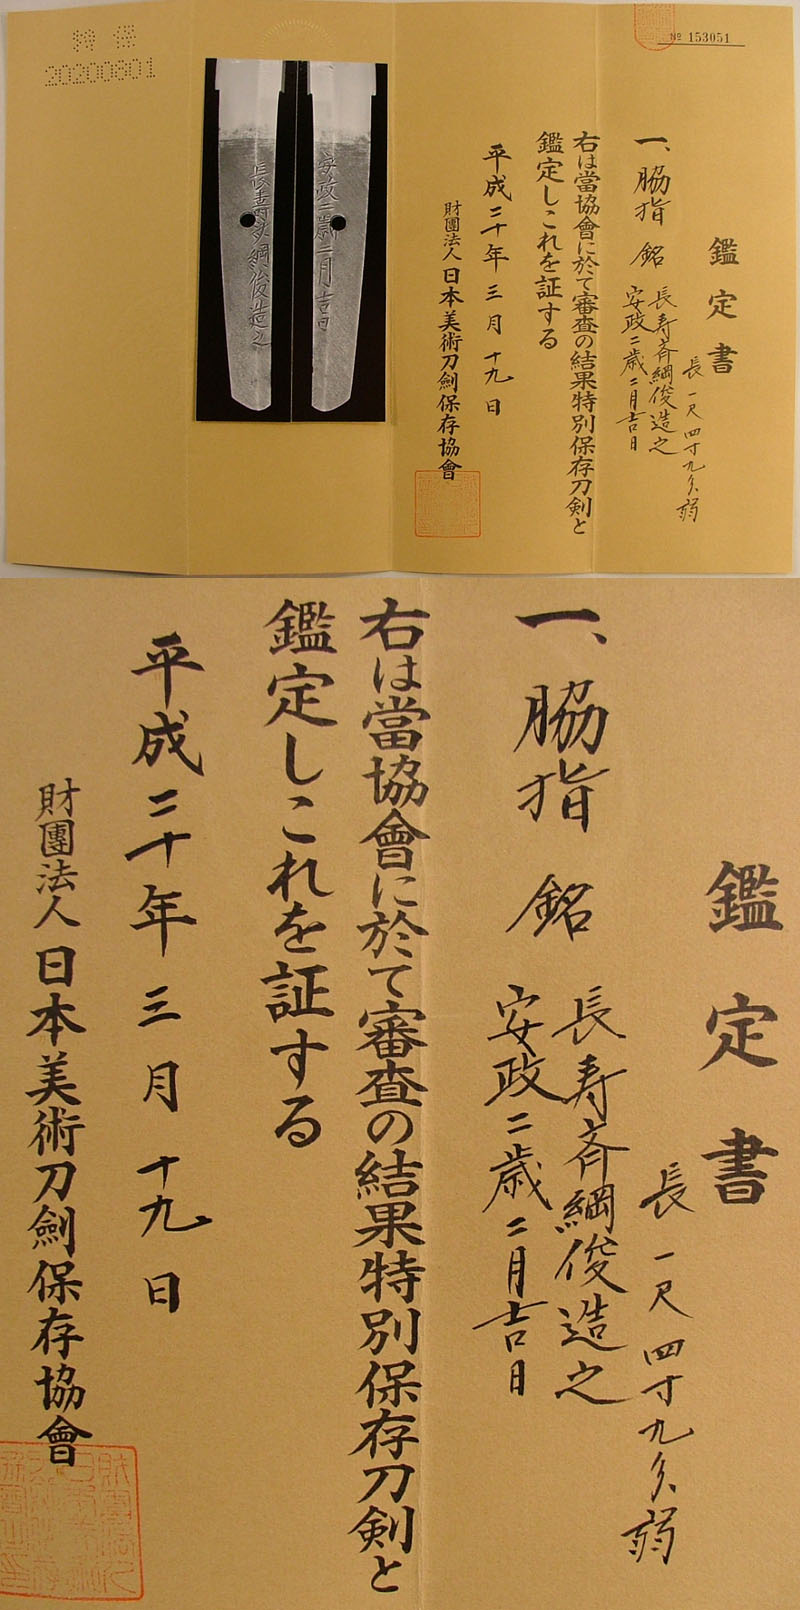 特保
20200801
№ 153051
鑑定書
長一尺四寸九分弱
一、脇指 銘 長寿斉綱俊造之
安政二歳二月吉日
右は當協會に於て審査の結果特別保存刀剣と
鑑定しこれを証する
平成二十年三月十九日
財團法人日本美術刀劍保存協會
安政二歳二月吉日
長寿斉綱俊造之
鑑定書
長一尺四寸九分弱
一、脇指 銘 長寿斉綱俊造之
安政二歳二月吉日
右は當協會に於て審査の結果特別保存刀剣と
鑑定しこれを証する
平成二十年三月十九日
財團法人日本美術刀劍保存協會